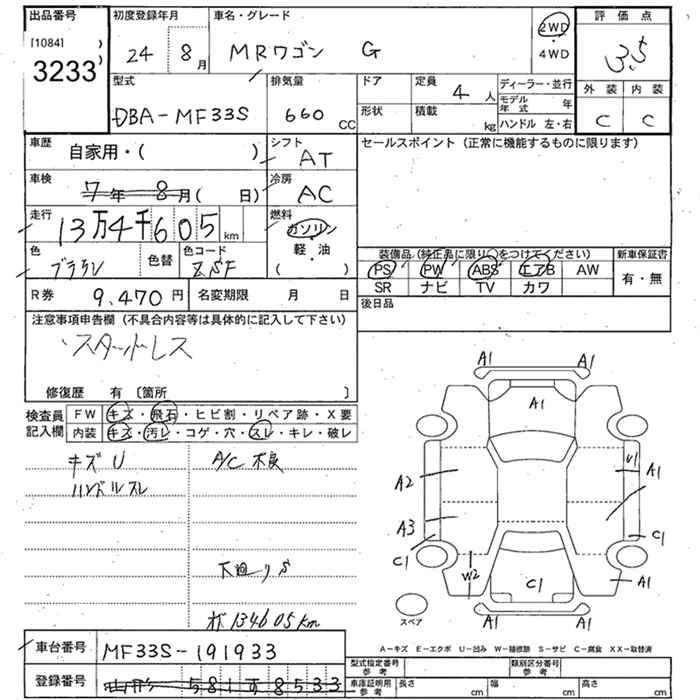 出品番号
[1084]
3233
初度登録年月
24 8月
車名・グレード
MRワゴン G
2WD
・
4WD
評価点
3.5
外装 内装
C C
型式
DBA-MF33S
排気量
660 CC
ドア
形状
定員
4 人
積載
kg
ディーラー・並行
モデル年式 年
ハンドル 左・右
車歴
自家用・( )
シフト
AT
セールスポイント (正常に機能するものに限ります)
車検
7年 8月( 日)
冷房
AC
走行
13万4千605 km
燃料
ガソリン
・
軽・油
( )
色
ブラウン
色替
色コード
装備品 (純正品に限り○をつけてください)
新車保証書
PS PW ABS エアB AW
有・無
SR ナビ TV カワ
R券
9,470 円
名変期限 月 日
後日品
注意事項申告欄 (不具合内容等は具体的に記入して下さい)
スタッドレス
修復歴 有 〔箇所 〕
検査員
記入欄
FW キズ・飛石・ヒビ割・リペア跡・X要
内装 キズ・汚レ・コゲ・穴・スレ・キレ・破レ
キズU
ハンドルスレ
A/C不良
下廻りS
オド134605km
A1 A1
A1
A2
A3
C1
U1
A1
C1
W2
C1
A1
A1 A1
スペア
A-キズ E-エクボ U-凹み W-補修跡 S-サビ C-腐食 XX-取替済
車台番号
MF33S-191933
登録番号
581す8533
型式指定番号
参考
類別区分番号
参考
車庫証明用
参考
長さ cm
幅 cm
高さ cm